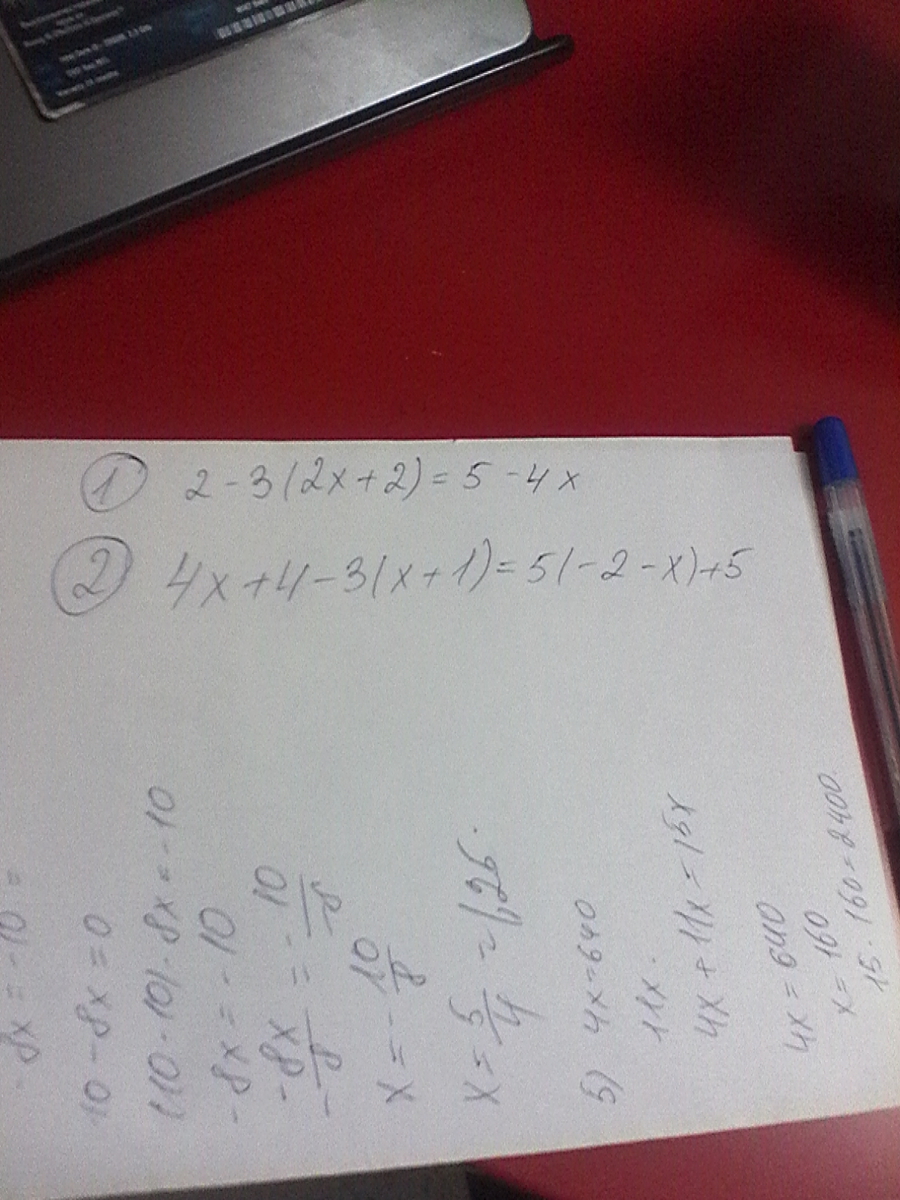 1 2-3(2x+2)=5-4x
2 4x+4-3(x+1)=5(-2-x)+5
-8x=-10=
10-8x=0
(10-10)-8x=-10
-8x=-10
-8x/-8=-10/-8
x=-10/8
x=5/4=1,25.
5) 4x=640
11x.
4x+11x=15x
4x=640
x=160
15·160=2400.